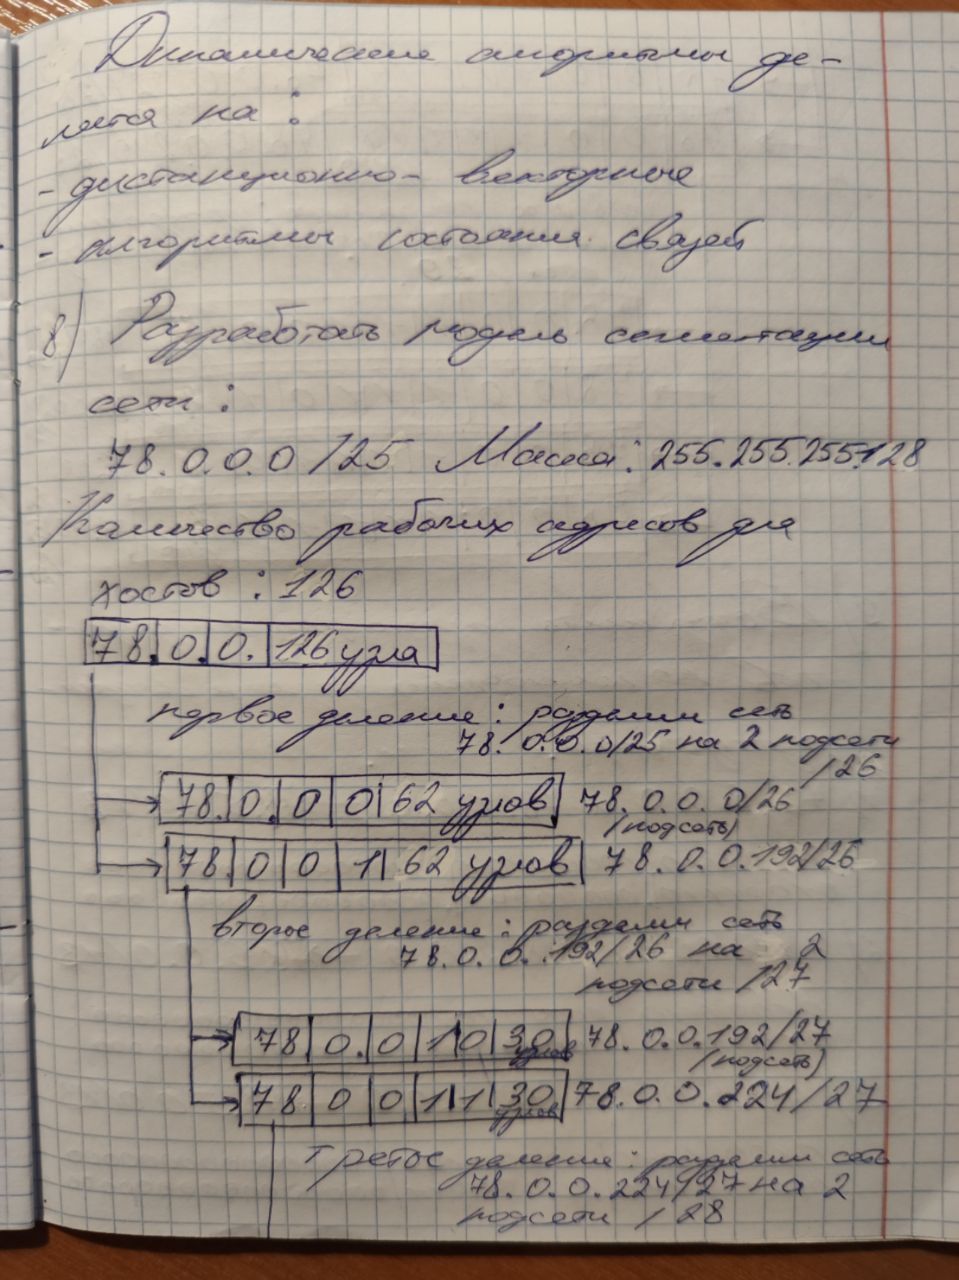 Динамические алгоритмы де-
лятся на:
- дистанционно- векторные
- алгоритмы состояния связей
8) Разработать модель сегментации
сети:
78.0.0.0/25 Маска: 255.255.255.128
Количество рабочих адресов для
хостов: 126
78. 0. 0. 126 узла
первое деление: разделим сеть
78.0.0.0/25 на 2 подсети
/26
78. 0. 0 0 62 узлов 78.0.0.0/26
(подсеть)
78. 0 0 1 62 узлов 78.0.0.192/26
второе деление: разделим сеть
78.0.0.192/26 на 2
подсети /27
78 0. 0 1 0 30 узлов 78.0.0.192/27
(подсеть)
78 0 0 1 1 30 узлов 78.0.0.224/27
третье деление: разделим сеть
78.0.0.224/27 на 2
подсети /28